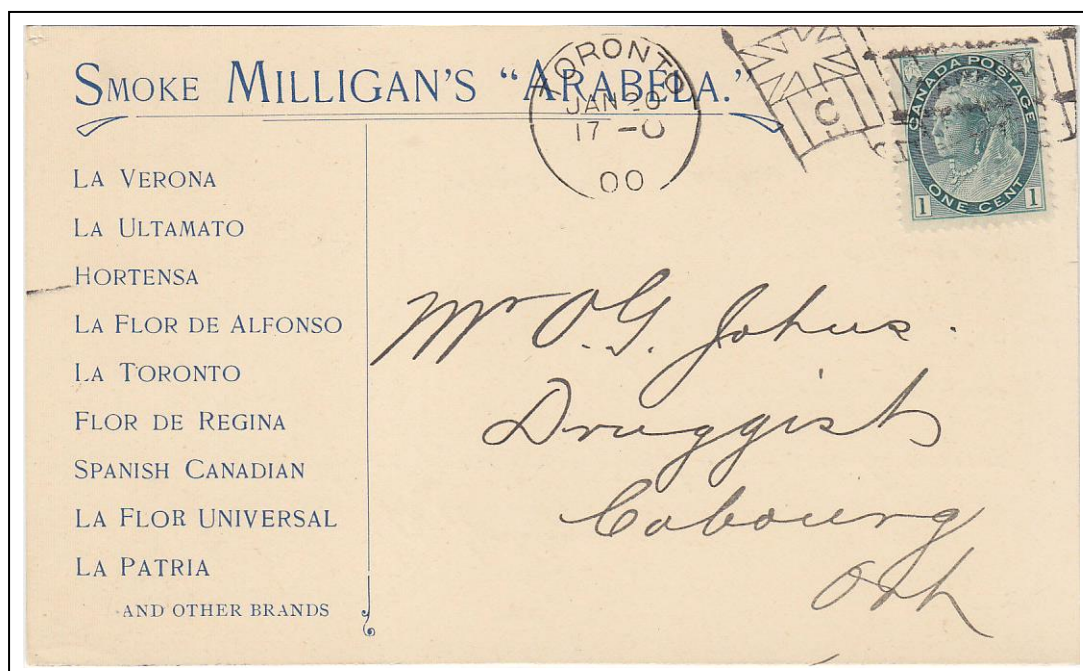 SMOKE MILLIGAN'S "ARABELA."
LA VERONA
LA ULTAMATO
HORTENSA
LA FLOR DE ALFONSO
LA TORONTO
FLOR DE REGINA
SPANISH CANADIAN
LA FLOR UNIVERSAL
LA PATRIA
AND OTHER BRANDS
TORONTO
JAN 20
17 - 0
00
C
CANADA POSTAGE
ONE CENT
1 1
Mr O.G. Johns.
Druggist
Cobourg
Ont